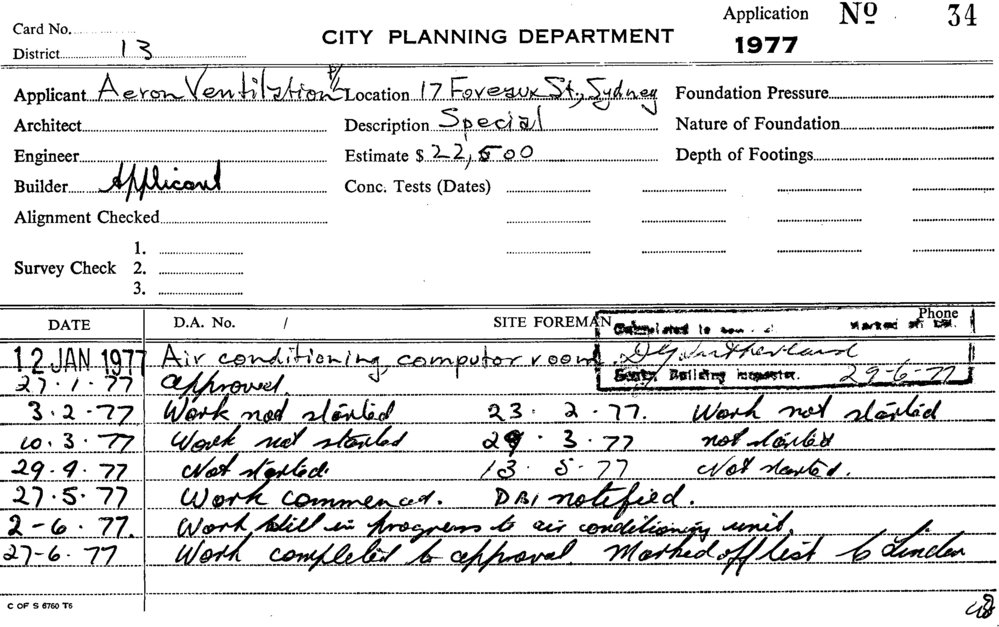 Card No.
District 13
CITY PLANNING DEPARTMENT
Application No 34
1977
Applicant Aeron Ventilation P/L Location 17 Foveaux St., Sydney Foundation Pressure
Architect Description Special Nature of Foundation
Engineer Estimate $ 22,500 Depth of Footings
Builder Applicant Conc. Tests (Dates)
Alignment Checked
1.
Survey Check 2.
3.
DATE D.A. No. / SITE FOREMAN Phone
12 JAN 1977 Air conditioning, computor room.
Building Inspector. 29-6-77
27.1.77 approved.
3.2.77 Work not started 23.2.77. Work not started
10.3.77 Work not started 29.3.77 not started
29.4.77 Not started. 13.5.77 Not started.
27.5.77 Work commenced. DBI notified.
2-6.77. Work still in progress to air conditioning unit.
27-6.77 Work completed to approval. Marked off list
C OF S 6760 T6